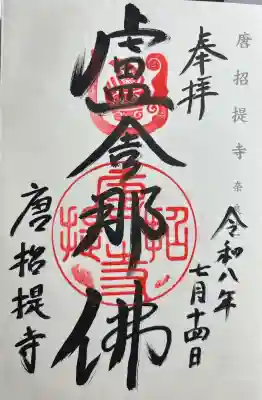 唐招提寺 奈良
奉拝
令和八年
七月十四日
盧舎那佛
唐招提寺
唐招提寺